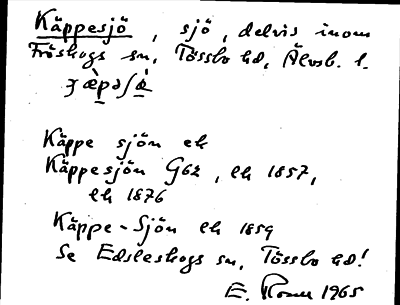 Käppesjö, sjö, delvis inom
Fröskogs sn, Tössbo hd, Älvsb. l.
Käppe sjön ek
Käppesjön G62, ek 1857,
ek 1876
Käppe-Sjön ek 1859
Se Edsleskogs sn, Tössbo hd!
E. 1965